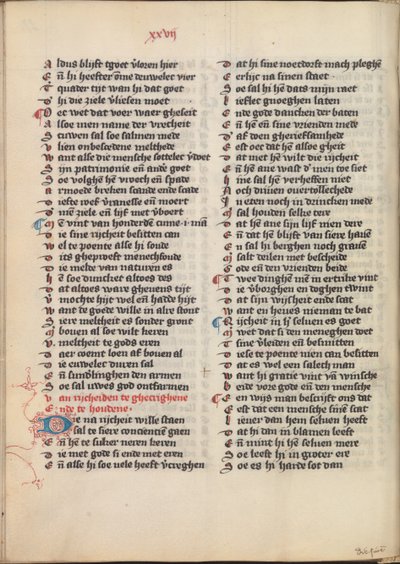 xxvij
A ldus blijft tgoet v̓loren hier
E n̄ hi heefter om̄e deuwelec vier
T quader tijt wan hi dat goet
D ie ziele v̓liesen moet
O ec wet dat voer waer gheseit
A lsoe men name der vrecheit
S cuwen sal soe salmen mede
V lien onbescedene meldhede
W ant alse die mensche sottelec v̓doet
S ijn patrimonie en̄ ande goet
S oe volghē hē vroech en̄ spade
A rmoede breken scande ende scade
D iefte roef v̓ranesse en̄ moert
D ziele en̄ lijf met v̓boert
M ē vint van honderdē cume · i · mā
D ie sine rijcheit besitten can
W el te poente alse hi soude
D its gheproeft menechfoude
D ie melde van naturen es
H ē soe dunct altoes des
D at altoes ware gheuens tijt
V mochte hijt wel en̄ hadde hijt
W ant de goede wille in alre stont
D iere meltheit es sonder gront
M bouen al soe wilt keren
U meltheit te gods eren
D aer coemt loen af bouen al
D ie euwelec duren sal
E n̄ sundlinghen den armen
S oe sal uwes god ontfarmen
V an rijcheiden te ghecrighene
E nde te houdene ·
D ie na rijcheit wille staen
D sal te siere consientiē gaen
E n̄ hē te sukre neren keren
D ie met gode si ende met eren
E n̄ alse hi soe vele heeft v̓creghen
D at hi sine noetdorft mach pleghē
E erlijc na sinen staet
S oe sal hi hē dats mijn raet
L ieflec gnoeghen laten
E nde gode dancken der baten
E n̄ hē en̄ sine vriende mede
D af den ghiericsamhede
E st oec dat hē alsoe gheit
D at met hē wilt die rijcheit
E n̄ hē ane wast d' men toe siet
H ine sal hē verheffen niet
N och driuen ouertollechede
N ieten noch in drincken mede
M sal houden selke tere
D at hē ane sijn lijf men dere
E n̄ dat hē blijft van siere hauē
E n̄ sal hi berghen noch grauē
M salt deilen met bescheide
G ode en̄ den vrienden beide
T wee dinghē mē in ertrike vint
D ie v̓borghen en̄ doghen twint
D at sijn wijsheit ende scat
W ant en heues nieman te bat
R ijcheit in hē seluen es goet
M wet dat si den meneghen doet
D sine v̓leiden en̄ besmitten
D iese te poente niet can besitten
D at es wel een salech man
D aut hi gratie vint vā winschē
B eide vore gode en̄ den mensche
E en wijs man bescrijft ons dat
E st dat een mensche sine scat
L ieuer dan hem seluen heeft
D at hi dan in blamen leeft
E n̄ mint hi hē seluen mere
S oe leeft hi in groter ere
S oe es hi harde sot dan